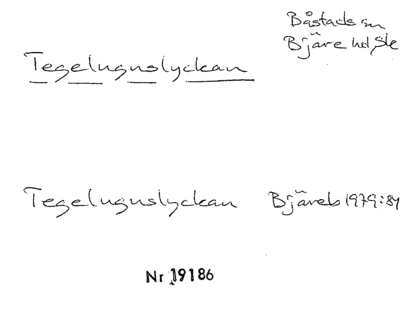 Båstads sn
Bjäre hd, Sk
Tegelugnslyckan
Tegelugnslyckan Bjäreb 1979:84
Nr 19186